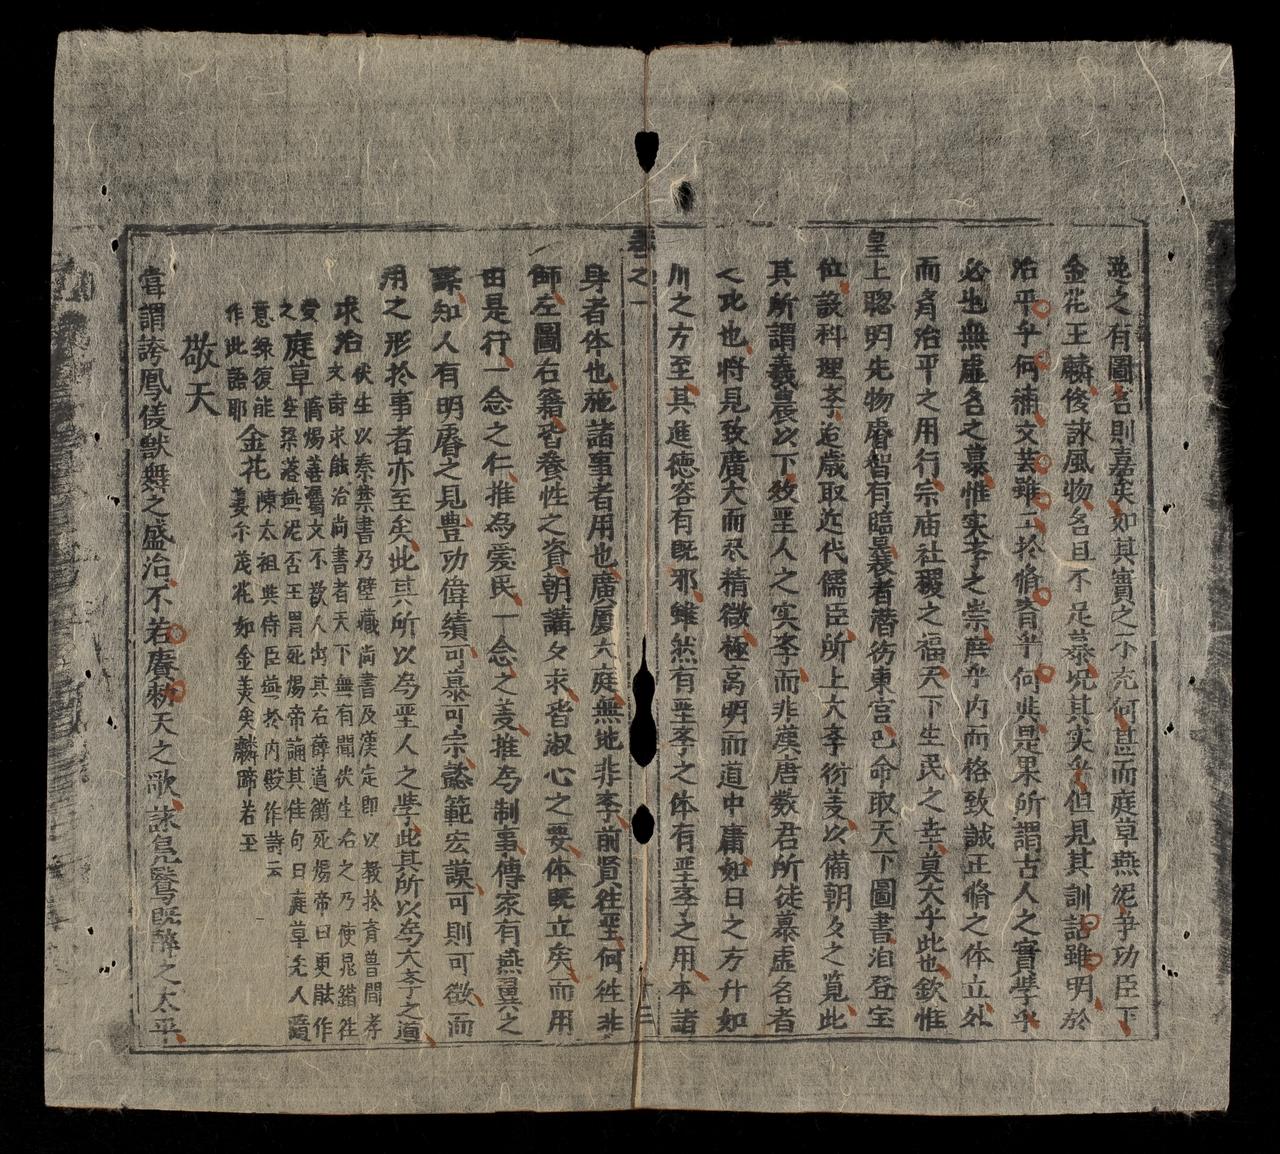 池之有圖名則嘉矣如其實之不充何甚而庭草燕泥争功臣下
金花王麟俊詠風物名且不足慕况其实乎但見其訓詁雖明於
治平乎何補文芸雖工於脩斉乎何与是果所謂古人之實學乎
必也無虛名之慕惟实孝之崇庶乎内而格致誠正脩之体立外
而斉治平之用行宗庙社稷之福天下生民之幸莫大乎此也欽惟
皇上聡明先物睿智有臨曩者潜衍東宫已命取天下圖書洎登宝
位設科理孝迨歳取近代儒臣所上大孝衍羙以備朝夕之覧此
其所謂羲農以下效𦤀人之实孝而非漢唐数君所徒慕虛名者
之比也将見致廣大而尽精微極高明而道中庸如日之方升如
川之方至其進德容有既邪雖然有圣孝之体有圣孝之用本諸
卷之一 十三
身者体也施諸事者用也廣厦大庭無地非孝前賢往圣何徃非
師左圖右籍皆養性之資朝講夕求皆淑心之要体既立矣而用
由是行一念之仁推為爱民一念之羙推為制事傳家有燕翼之
謀知人有明睿之見豊功偉績可慕可宗懿範宏謨可則可徵而
用之形扵事者亦至矣此其所以為圣人之學此其所以為大孝之道
求治 伏生以秦焚書乃壁藏尚書及漢定即以教扵斉魯間孝
文帝求䏻治尚書者天下無有聞伏生右之乃使晁錯徃
受之 庭草 隋煬善属文不欲人出其右薛道衡死煬帝曰更䏻作
空梁落燕泥否王冑死煬帝誦其佳句曰庭草无人随
意緑復能作此語耶 金花 陳太祖與侍臣燕扵内殿作詩云
姜尓茂花如金羙矣麟蹄若至
敬天
嘗謂誇鳳儀獣舞之盛治不若賡勑天之歌詠鳬鷖既醉之太平